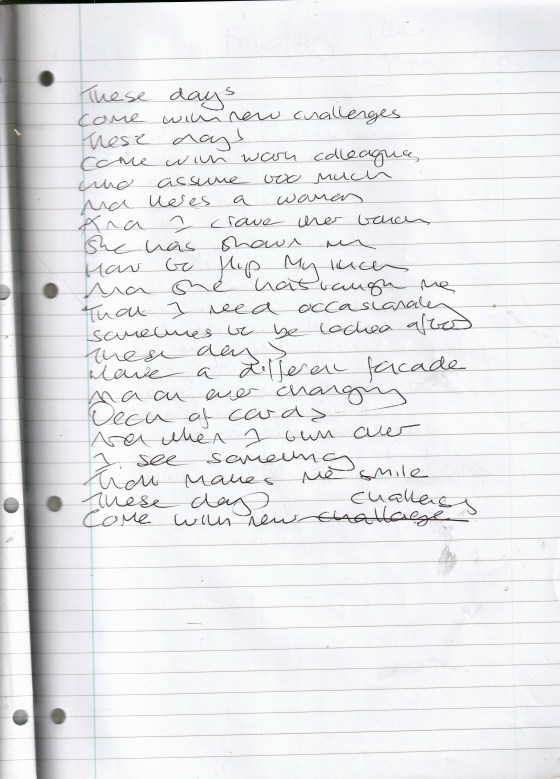 These days
come with new challenges
These days
come with work colleagues
who assume too much
And theres a woman
And I crave her touch
She has shown me
How to flip My lunch
And she has taught me
That I need occasionaly
sometimes to be looked after
These days
Have a different facade
And an ever changing
Deck of cards
And when I turn over
I see something
That makes me smile
These days
come with new challenges